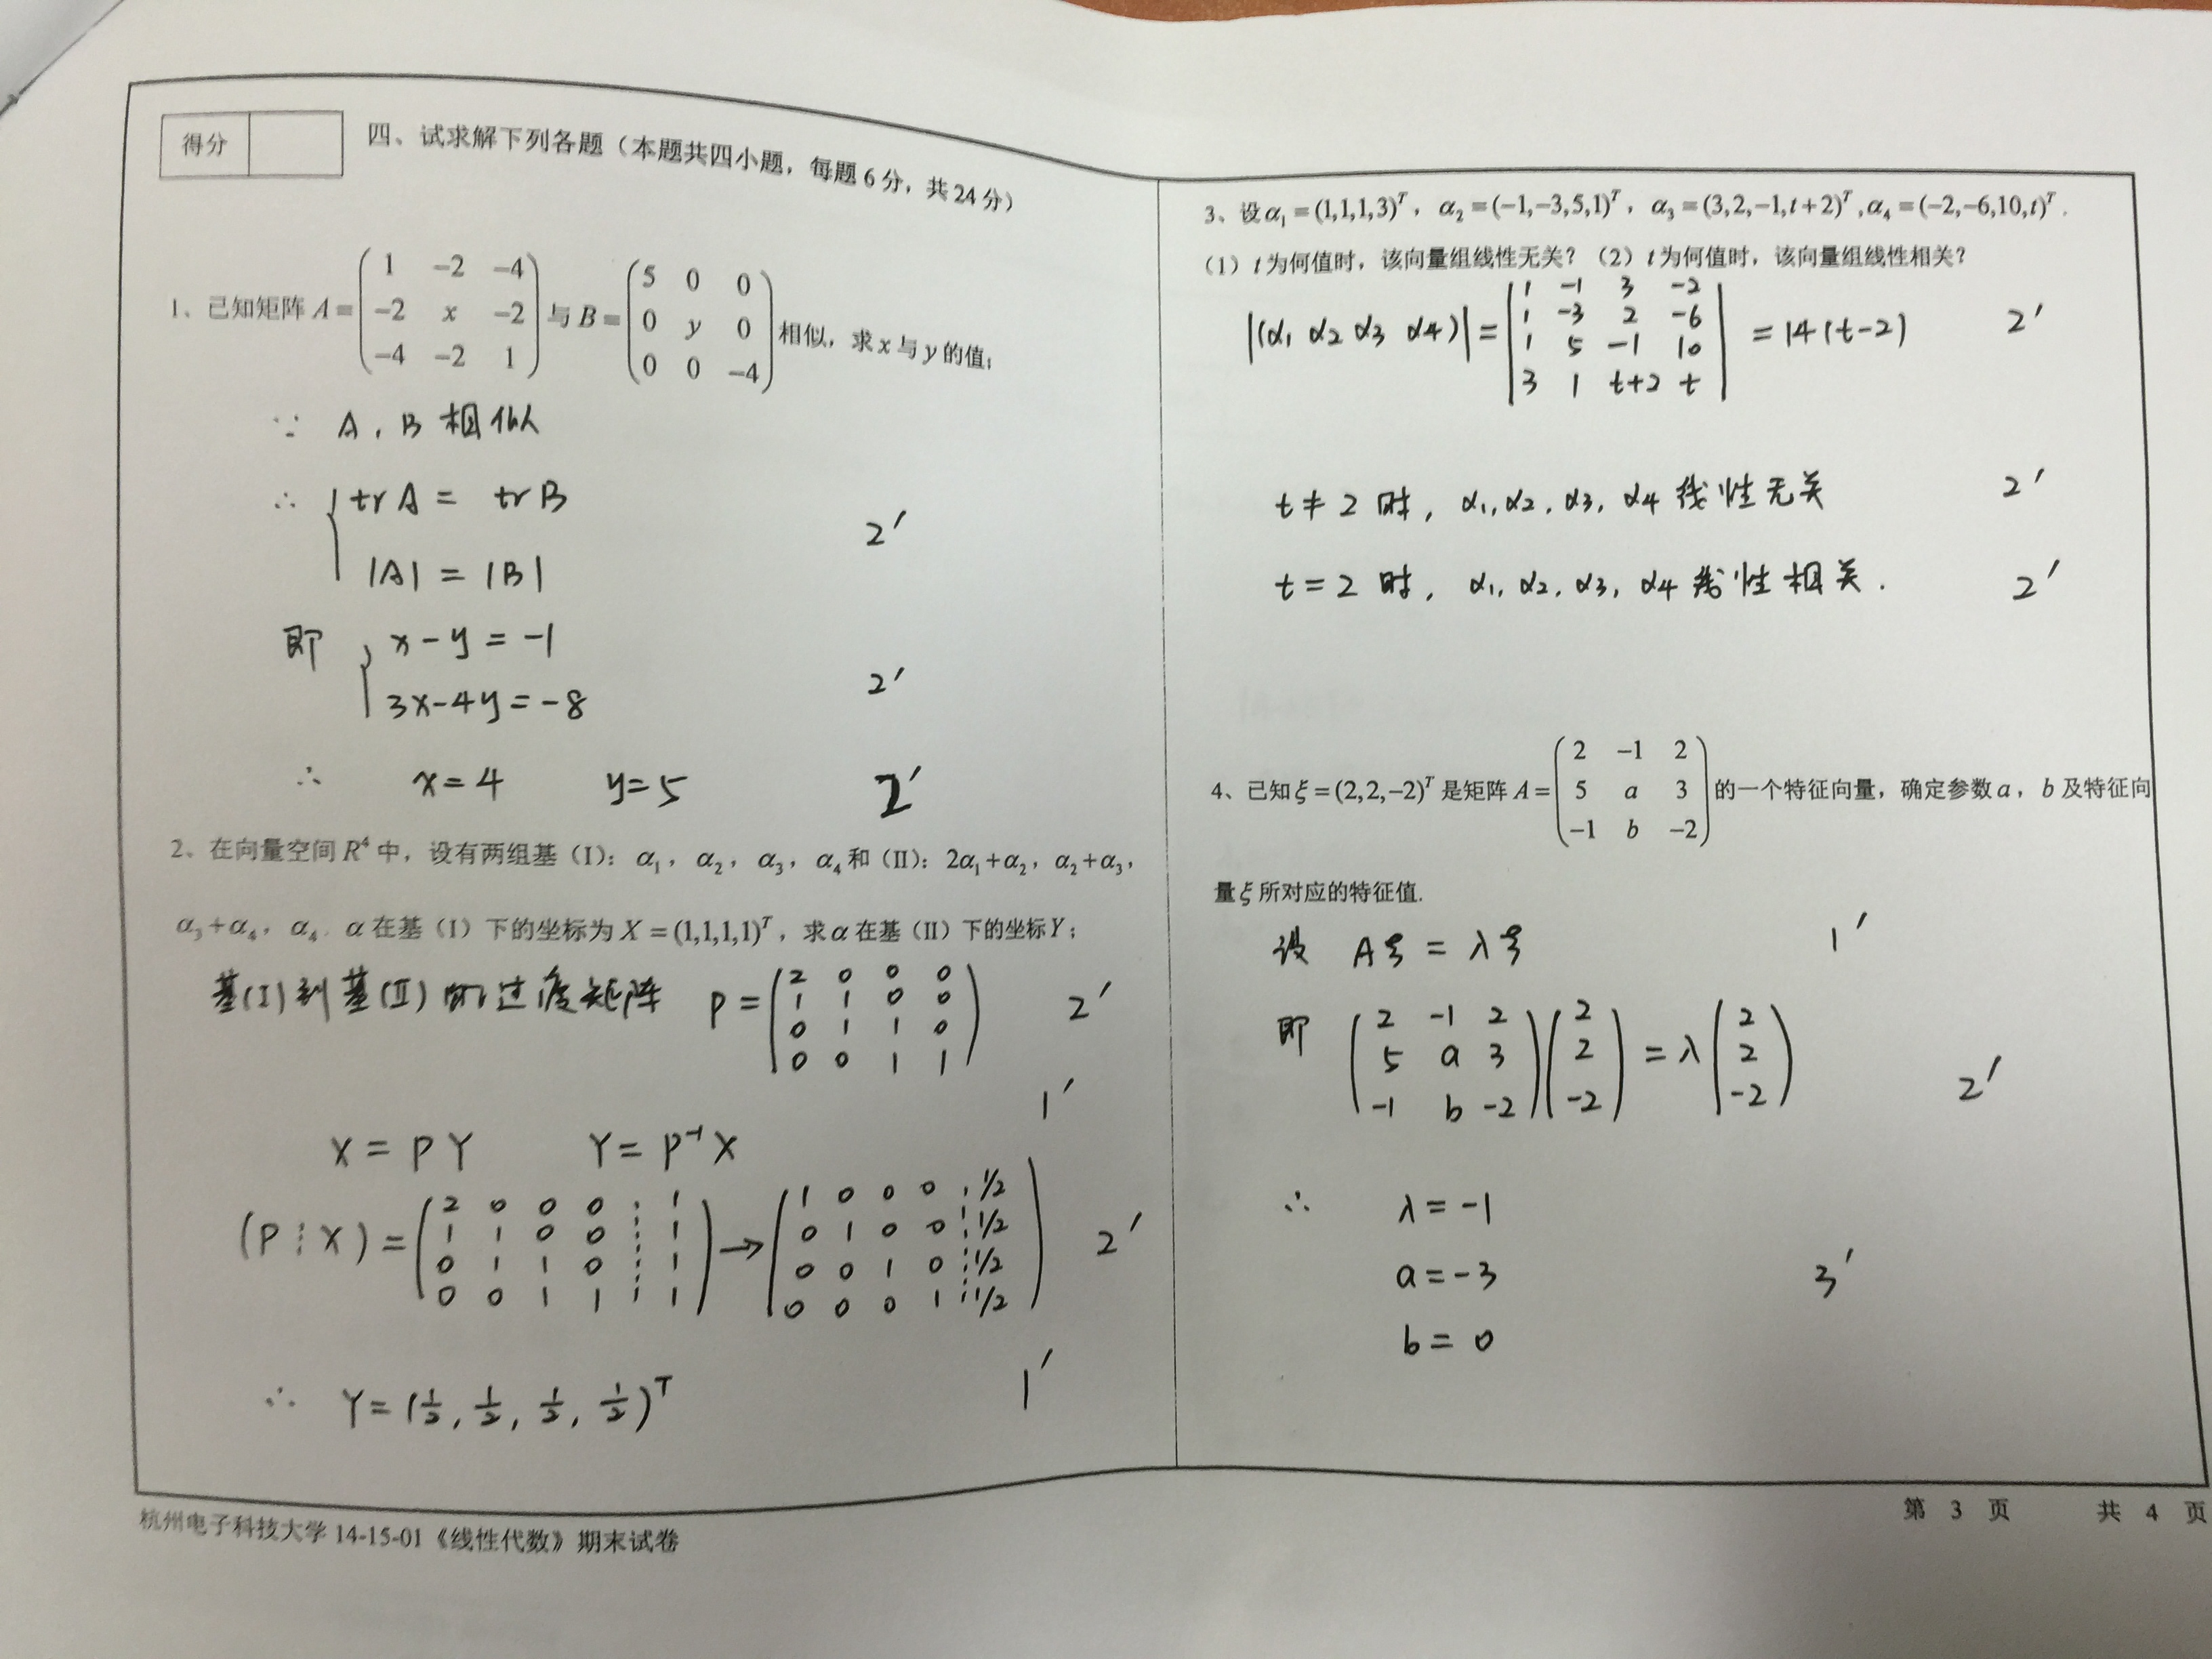 得分
四、试求解下列各题（本题共四小题，每题6分，共24分）
1、已知矩阵 A = ( 1 -2 -4 ; -2 x -2 ; -4 -2 1 ) 与 B = ( 5 0 0 ; 0 y 0 ; 0 0 -4 ) 相似，求 x 与 y 的值；
∵ A, B 相似
∴ { trA = trB
|A| = |B| 2′
即 { x-y = -1
3x-4y = -8 2′
∴ x=4 y=5 2′
2、在向量空间 R⁴ 中，设有两组基（I）：α₁，α₂，α₃，α₄ 和（II）：2α₁+α₂，α₂+α₃，
α₃+α₄，α₄. α 在基（I）下的坐标为 X = (1,1,1,1)ᵀ，求 α 在基（II）下的坐标 Y；
基(I)到基(II)的过渡矩阵 P = ( 2 0 0 0 ; 1 1 0 0 ; 0 1 1 0 ; 0 0 1 1 ) 2′
1′
X = PY Y = P⁻¹X
(P ⋮ X) = ( 2 0 0 0 ⋮ 1 ; 1 1 0 0 ⋮ 1 ; 0 1 1 0 ⋮ 1 ; 0 0 1 1 ⋮ 1 ) → ( 1 0 0 0 ⋮ 1/2 ; 0 1 0 0 ⋮ 1/2 ; 0 0 1 0 ⋮ 1/2 ; 0 0 0 1 ⋮ 1/2 ) 2′
∴ Y = (1/2, 1/2, 1/2, 1/2)ᵀ 1′
3、设 α₁ = (1,1,1,3)ᵀ，α₂ = (-1,-3,5,1)ᵀ，α₃ = (3,2,-1,t+2)ᵀ,α₄ = (-2,-6,10,t)ᵀ.
（1）t 为何值时，该向量组线性无关？（2）t 为何值时，该向量组线性相关？
|(α₁ α₂ α₃ α₄)| = | 1 -1 3 -2 ; 1 -3 2 -6 ; 1 5 -1 10 ; 3 1 t+2 t | = 14(t-2) 2′
t ≠ 2 时, α₁, α₂, α₃, α₄ 线性无关 2′
t = 2 时, α₁, α₂, α₃, α₄ 线性相关. 2′
4、已知 ξ = (2,2,-2)ᵀ 是矩阵 A = ( 2 -1 2 ; 5 a 3 ; -1 b -2 ) 的一个特征向量，确定参数 a，b 及特征向
量 ξ 所对应的特征值.
设 Aξ = λξ 1′
即 ( 2 -1 2 ; 5 a 3 ; -1 b -2 ) ( 2 ; 2 ; -2 ) = λ ( 2 ; 2 ; -2 ) 2′
∴ λ = -1
a = -3 3′
b = 0
杭州电子科技大学 14-15-01《线性代数》期末试卷
第 3 页 共 4 页